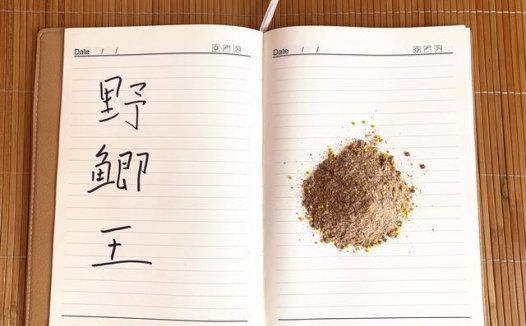 Date / /
野
鲫
王
Date / /